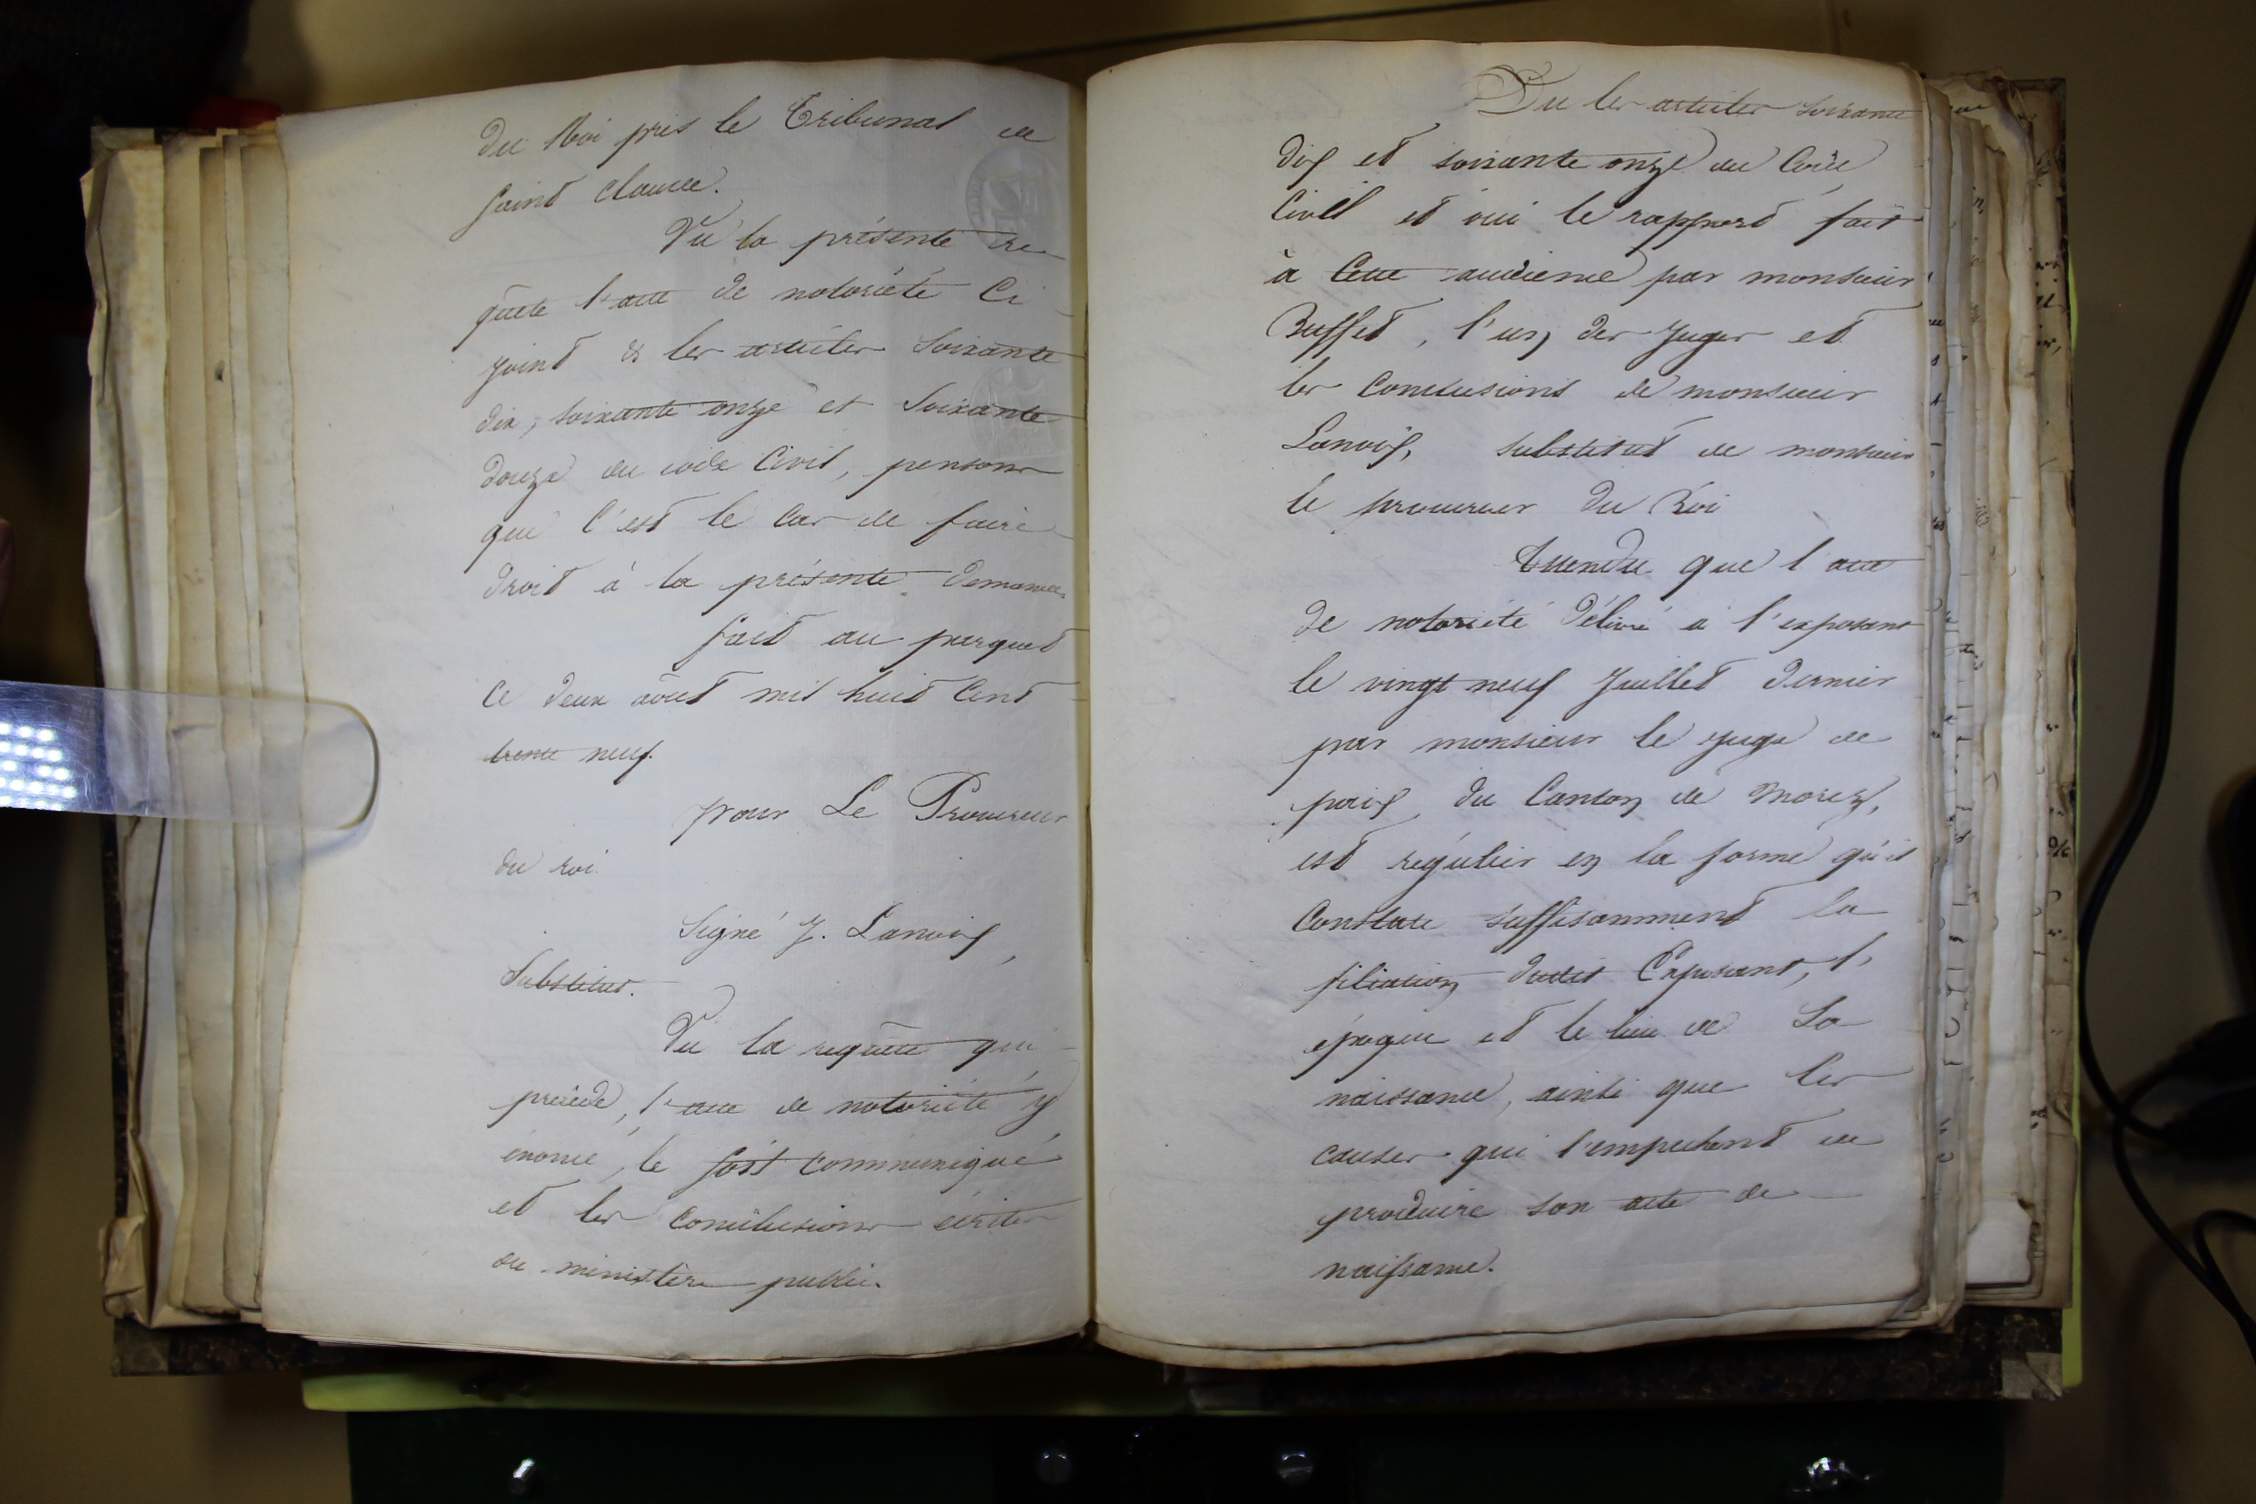 du Roi près le Tribunal de
Saint Claude.
Vu la présente re-
quête l'acte de notoriété ci-
joint & les articles Soixante
dix, soixante onze et Soixante
douze du code Civil, pensons
que c'est le cas de faire
droit à la présente demande.
fait au parquet
ce deux août mil huit cent
trente neuf.
pour Le Procureur
du roi.
Signé J. Lanoix,
Substitut.
Vu la requête qui
précède, l'acte de notoriété y
énoncé, le soit communiqué
et les conclusions écrites
du ministère public.
Vu les articles soixante
dix et soixante onze du Code
Civil et oui le rapport fait
à cette audience par monsieur
Buffet, l'un des Juges et
les conclusions de monsieur
Lanoix, substitut de monsieur
le procureur du Roi
Attendu que l'acte
de notoriété délivré à l'exposant
le vingt neuf Juillet dernier
par monsieur le juge de
paix du Canton de Morez,
est régulier en la forme qu'il
Constate suffisamment la
filiation dudit Exposant, l'
époque et le lieu de Sa
naissance, ainsi que les
causes qui l'empechent de
produire son acte de
naissance.